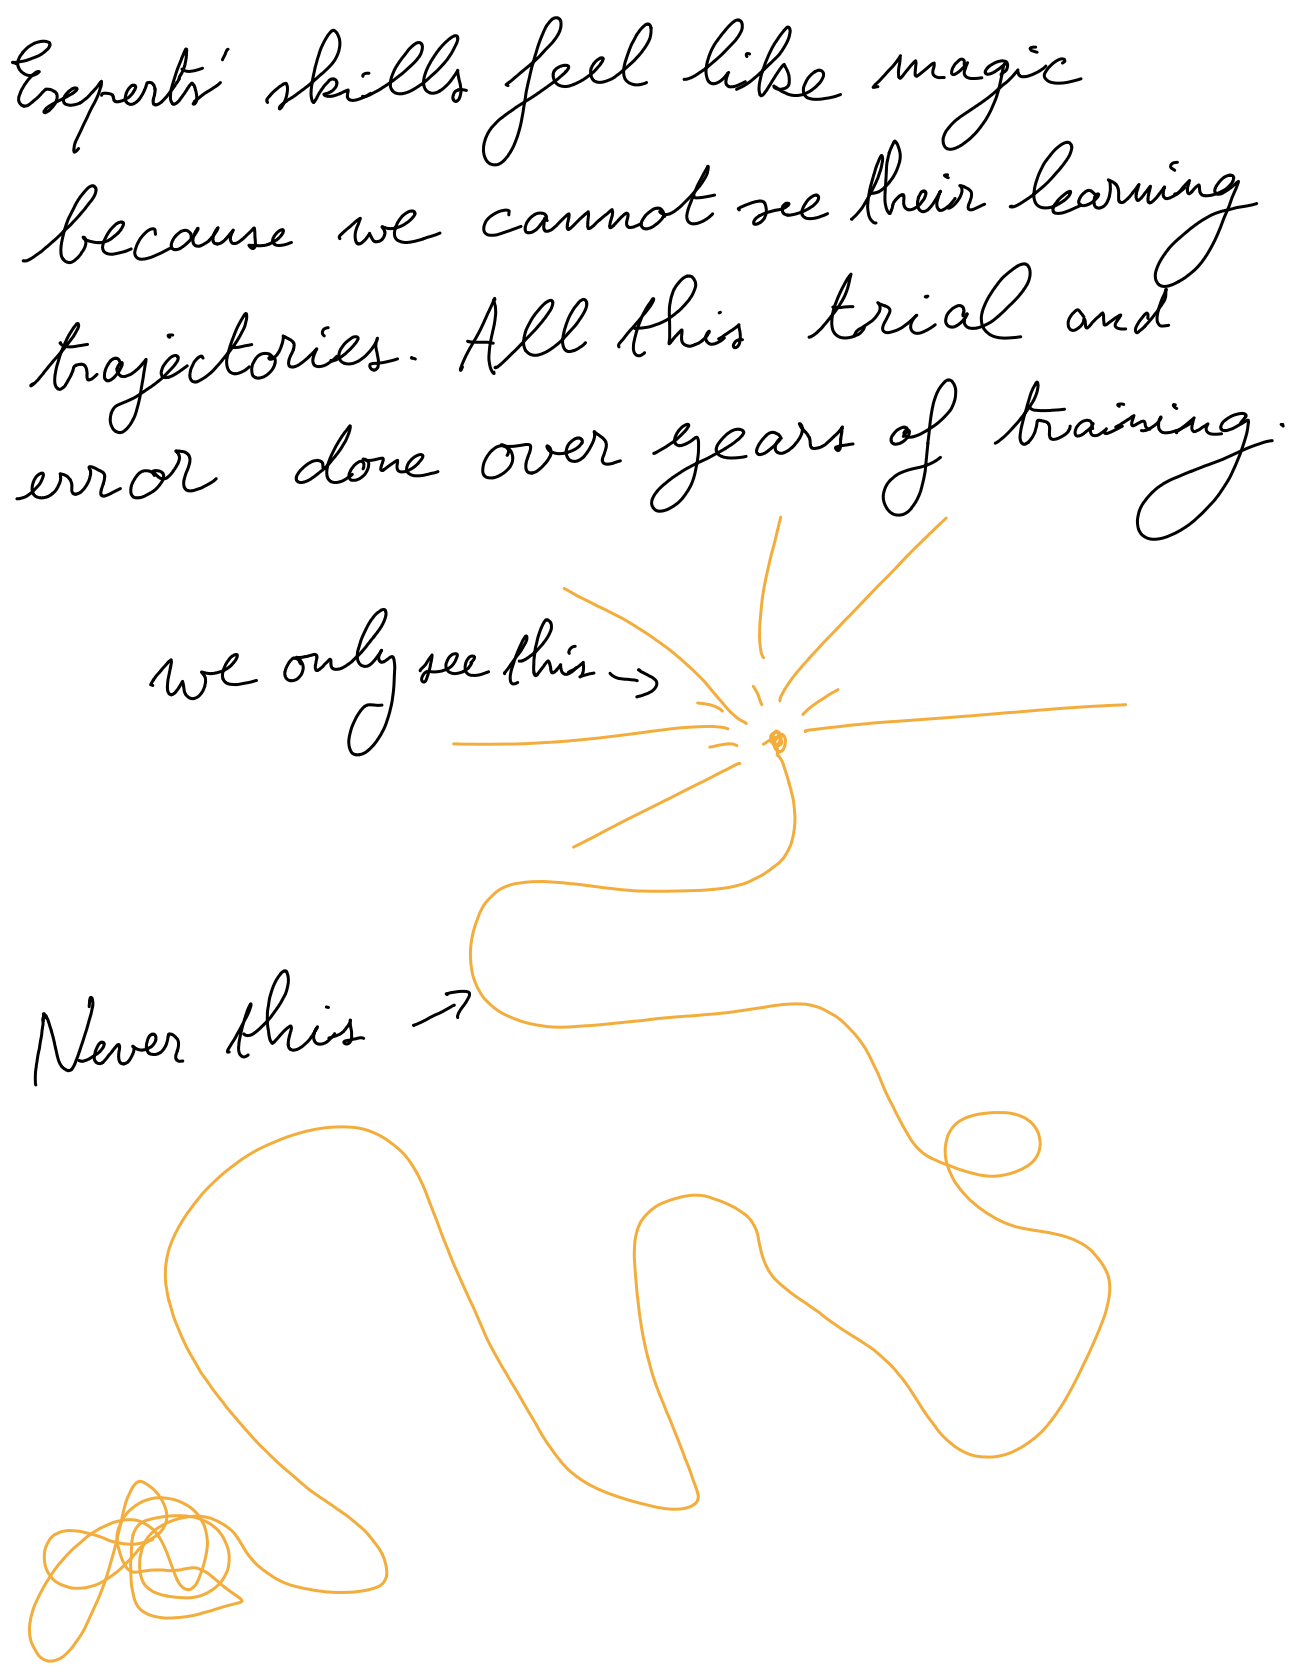 Experts' skills feel like magic
because we cannot see their learning
trajectories. All this trial and
error done over years of training.
we only see this →
Never this →